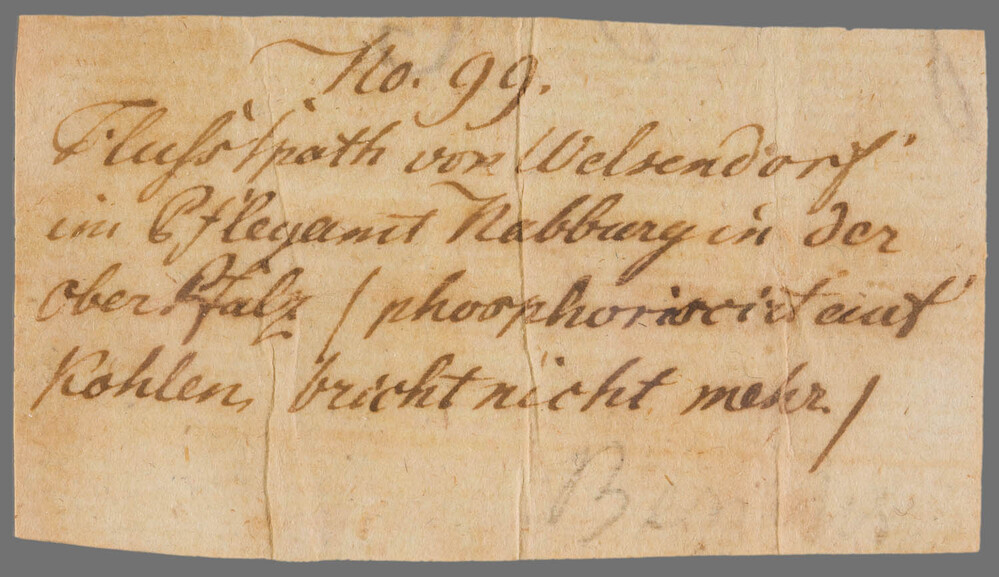 No. 99.
Flußspath von Welsendorf
im Pflegamt Nabburg in der
oberPfalz / phosphoriscirt auf
Kohlen, bricht nicht mehr. /